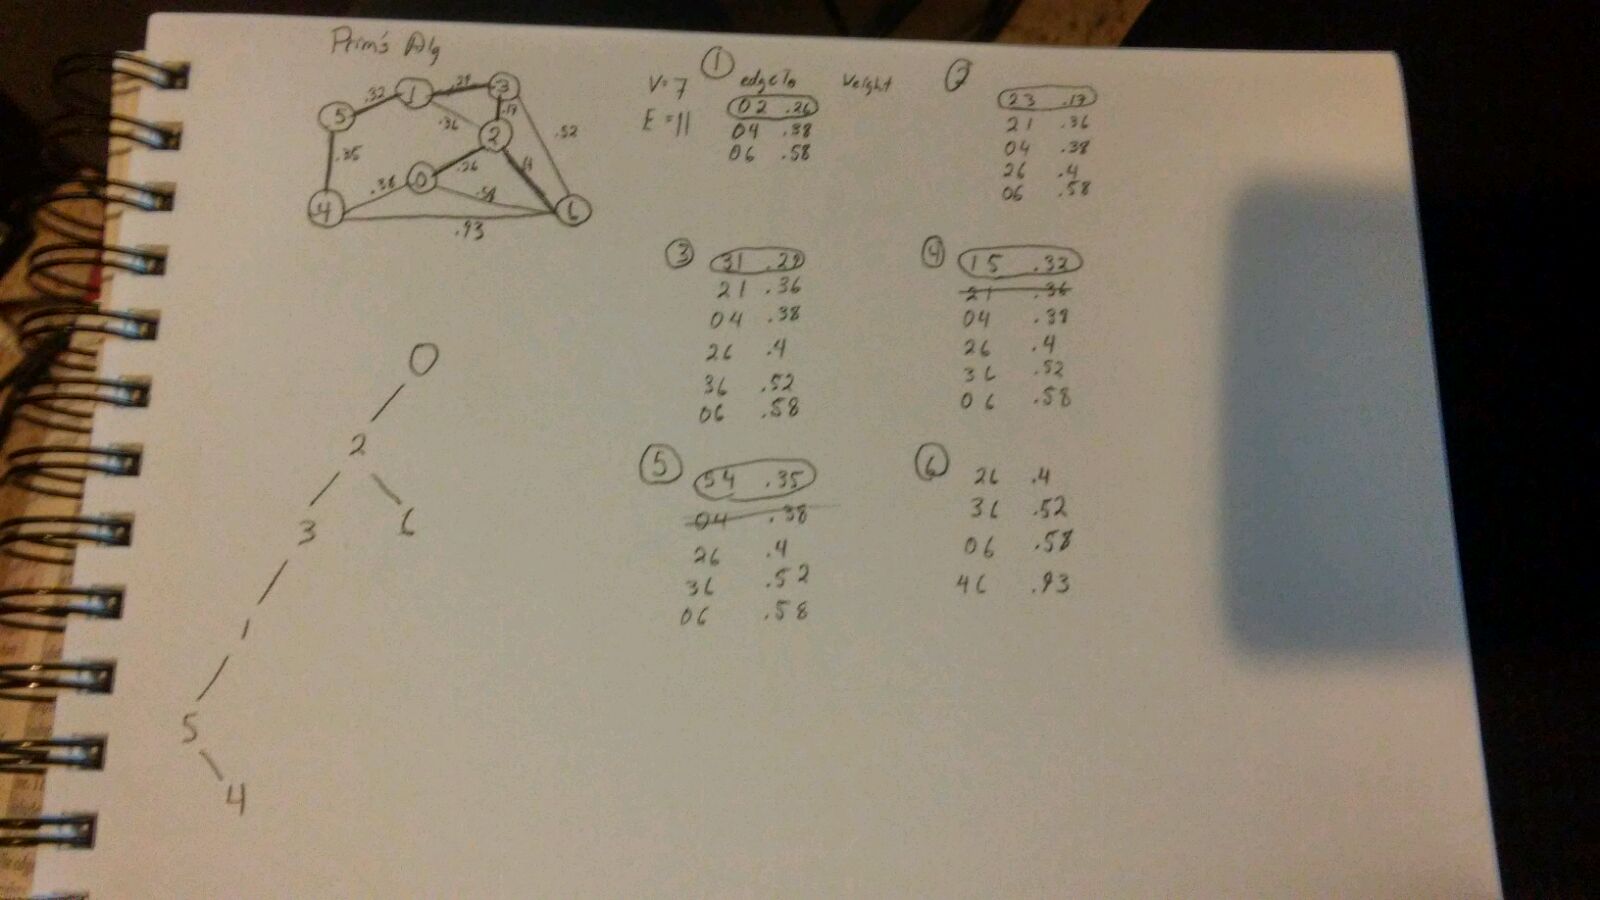 Prim's Alg
1 .29 3
.32
5 .36 .17
2 .52
.35 .26 .4
.38 0 .58
4 6
.93
V=7
E=11
① edgeTo Weight
02 .26
04 .38
06 .58
②
23 .17
21 .36
04 .38
26 .4
06 .58
③ 31 .29
21 .36
04 .38
26 .4
36 .52
06 .58
④ 15 .32
21 .36
04 .38
26 .4
36 .52
06 .58
⑤ 54 .35
04 .38
26 .4
36 .52
06 .58
⑥ 26 .4
36 .52
06 .58
46 .93
0
2
3 6
1
5
4